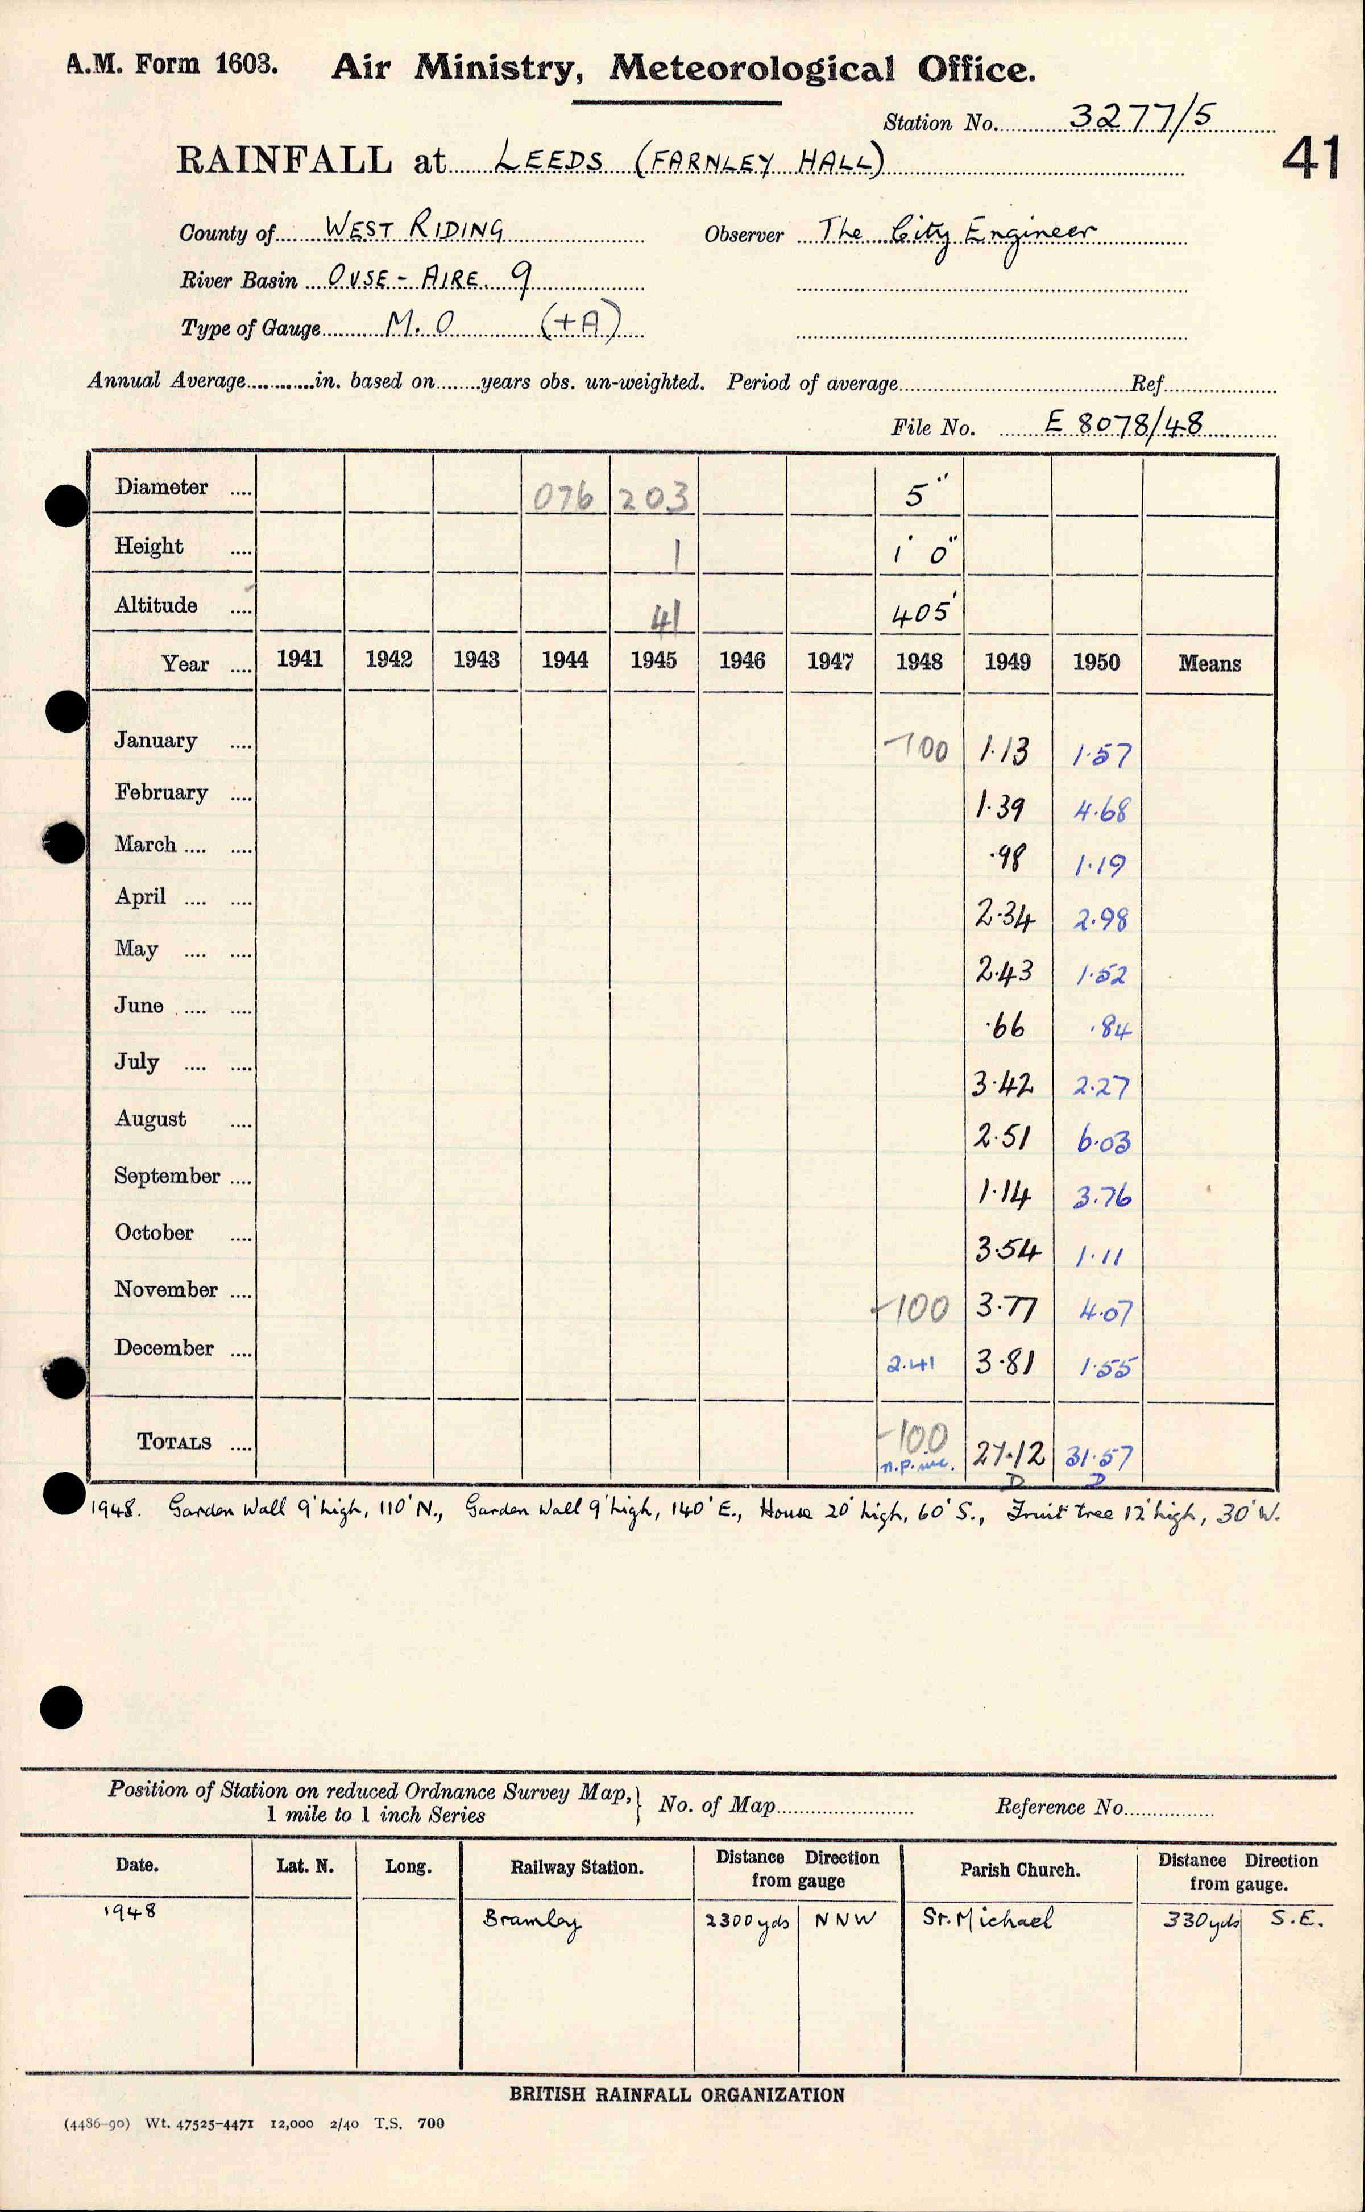 A.M. Form 1603. Air Ministry, Meteorological Office.
Station No. 3277/5
41
RAINFALL at LEEDS (FARNLEY HALL)
County of WEST RIDING Observer The City Engineer
River Basin OUSE - AIRE 9
Type of Gauge M.O (+A)
Annual Average............in. based on........years obs. un-weighted. Period of average........ Ref........
File No. E 8078/48
Diameter .... 076 203 5"
Height .... 1 1' 0"
Altitude .... 41 405'
Year .... 1941 1942 1943 1944 1945 1946 1947 1948 1949 1950 Means
January .... -100 1.13 1.57
February .... 1.39 4.68
March .... .... .98 1.19
April .... .... 2.34 2.98
May .... .... 2.43 1.52
June .... .... .66 .84
July .... .... 3.42 2.27
August .... 2.51 6.03
September .... 1.14 3.76
October .... 3.54 1.11
November .... -100 3.77 4.07
December .... 2.41 3.81 1.55
TOTALS .... -100 27.12 31.57
n.p. inc. D D
1948. Garden Wall 9' high, 110' N., Garden Wall 9' high, 140' E., House 20' high, 60' S., Fruit tree 12' high, 30' W.
Position of Station on reduced Ordnance Survey Map, } No. of Map........ Reference No........
1 mile to 1 inch Series
Date. Lat. N. Long. Railway Station. Distance Direction from gauge Parish Church. Distance Direction from gauge.
1948 Bramley 2300 yds NNW St. Michael 330 yds S.E.
BRITISH RAINFALL ORGANIZATION
(4486-90) Wt. 47525-4471 12,000 2/40 T.S. 700